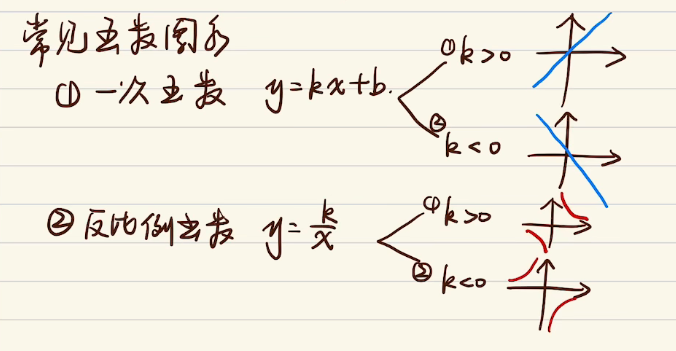 常见函数图象
① 一次函数 y=kx+b.
① k>0
② k<0
② 反比例函数 y=k/x
① k>0
② k<0